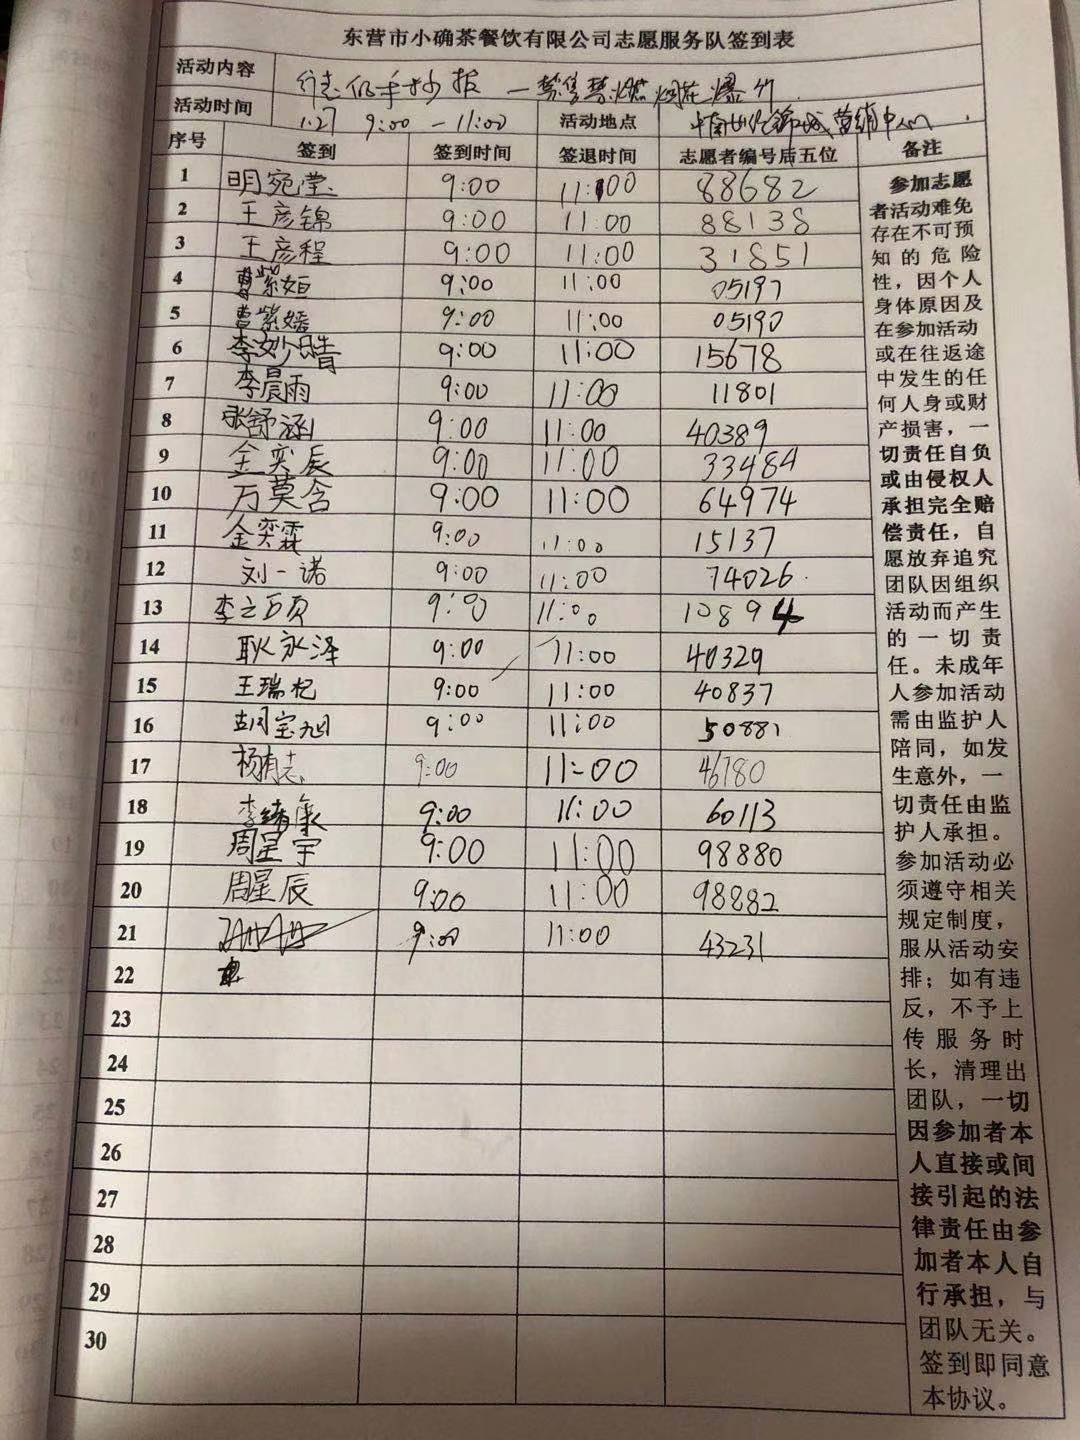 东营市小确茶餐饮有限公司志愿服务队签到表
活动内容 手抄报 一禁售禁燃烟花爆竹
活动时间 1.27 9:00 — 11:00 活动地点 中南世纪锦城营销中心
序号 签到 签到时间 签退时间 志愿者编号后五位 备注
1 明宛莹 9:00 11:00 88682
2 王彦锦 9:00 11:00 88138
3 王彦程 9:00 11:00 31851
4 曹紫姮 9:00 11:00 05197
5 曹紫嫣 9:00 11:00 05190
6 李妙晴 9:00 11:00 15678
7 李晨雨 9:00 11:00 11801
8 张舒涵 9:00 11:00 40389
9 金奕辰 9:00 11:00 33484
10 万莫含 9:00 11:00 64974
11 金奕霖 9:00 11:00 15137
12 刘一诺 9:00 11:00 74026
13 李之 9:00 11:00 10894
14 耿永泽 9:00 11:00 40329
15 王瑞杞 9:00 11:00 40837
16 胡宝旭 9:00 11:00 50881
17 杨有志 9:00 11:00 46780
18 李绪康 9:00 11:00 60113
19 周星宇 9:00 11:00 98880
20 周星辰 9:00 11:00 98882
21 9:00 11:00 43231
22
23
24
25
26
27
28
29
30
参加志愿
者活动难免
存在不可预
知的危险
性，因个人
身体原因及
在参加活动
或在往返途
中发生的任
何人身或财
产损害，一
切责任自负
或由侵权人
承担完全赔
偿责任，自
愿放弃追究
团队因组织
活动而产生
的一切责
任。未成年
人参加活动
需由监护人
陪同，如发
生意外，一
切责任由监
护人承担。
参加活动必
须遵守相关
规定制度，
服从活动安
排；如有违
反，不予上
传服务时
长，清理出
团队，一切
因参加者本
人直接或间
接引起的法
律责任由参
加者本人自
行承担，与
团队无关。
签到即同意
本协议。